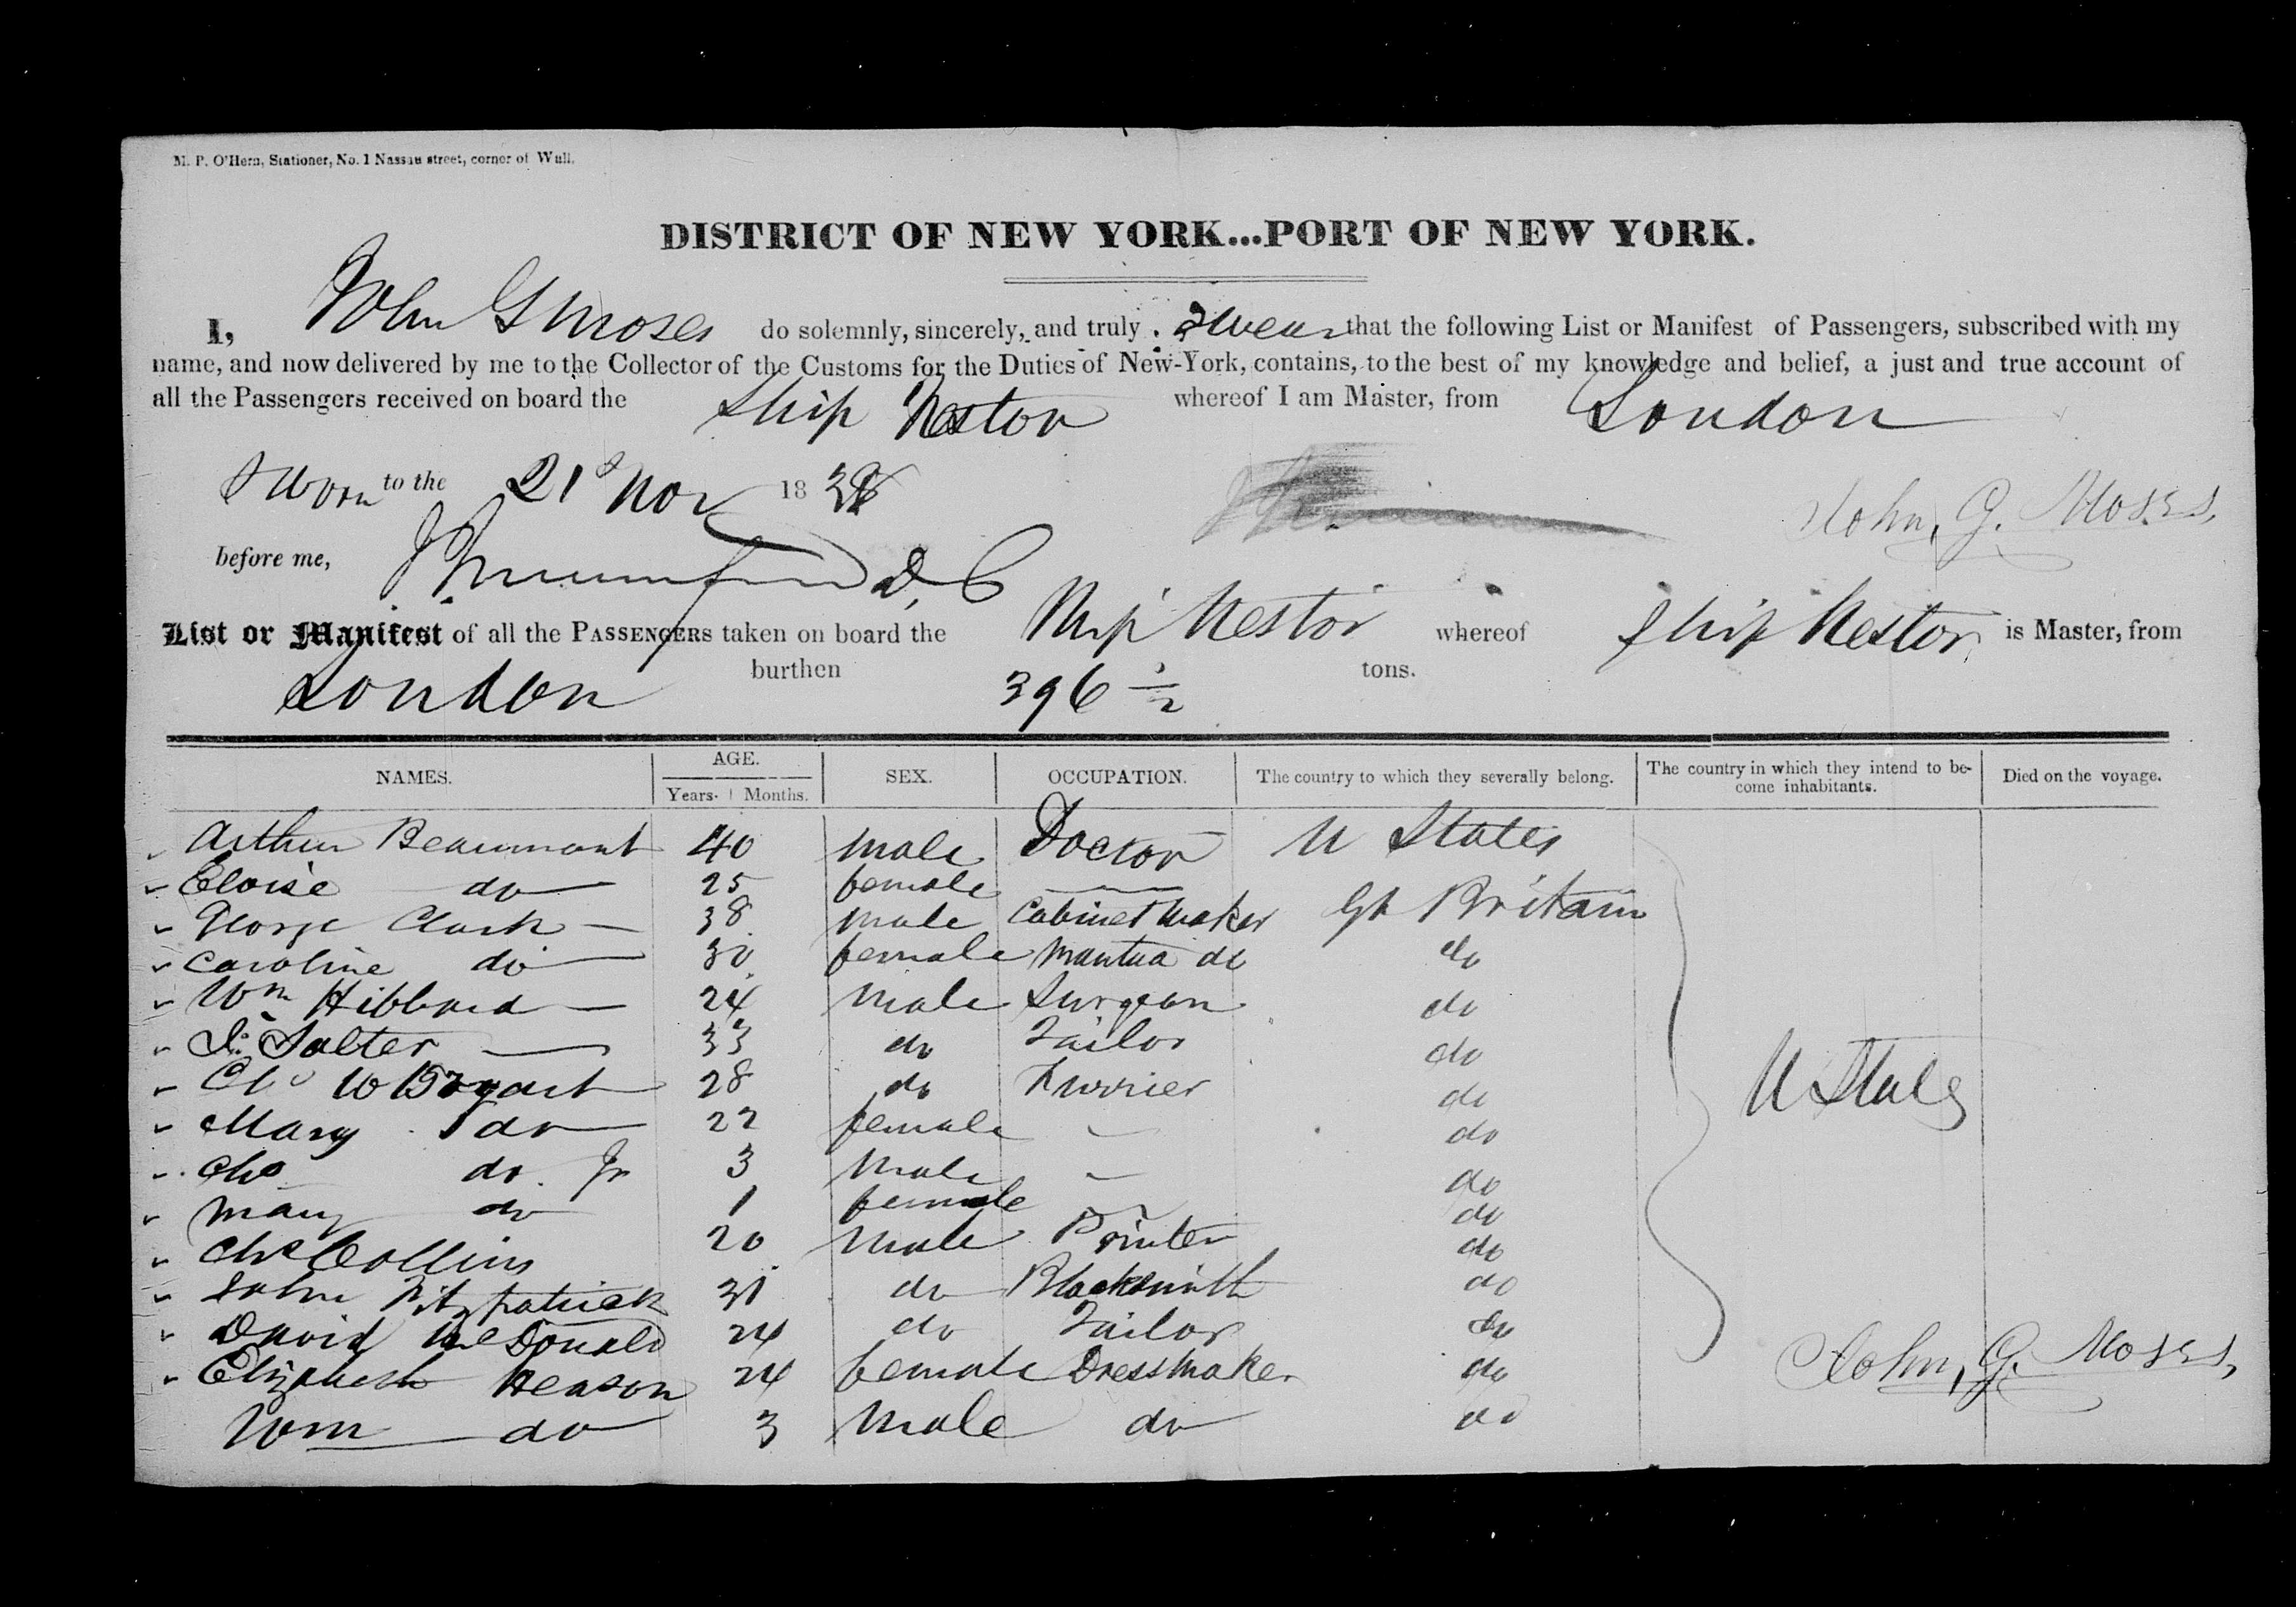 M. P. O'Hern, Stationer, No. 1 Nassau street, corner of Wall.
DISTRICT OF NEW YORK...PORT OF NEW YORK.
I, John G Moses do solemnly, sincerely, and truly swear that the following List or Manifest of Passengers, subscribed with my
name, and now delivered by me to the Collector of the Customs for the Duties of New-York, contains, to the best of my knowledge and belief, a just and true account of
all the Passengers received on board the Ship Nestor whereof I am Master, from London
Sworn to the 21st Nov 1838
John, G. Moses,
before me, D. C
List or Manifest of all the PASSENGERS taken on board the Ship Nestor whereof Ship Nestor is Master, from
London burthen 396 1/2 tons.
NAMES. AGE. Years. Months. SEX. OCCUPATION. The country to which they severally belong. The country in which they intend to become inhabitants. Died on the voyage.
Arthur Beaumont 40 Male Doctor U States
Eloise do 25 female —
George Clark — 38 Male Cabinet Maker Gt Britain
Caroline do 30 female Mantua do do
Wm Hibbard — 24 Male Surgeon do
Salter — 33 do Tailor do
W Bogart 28 do Furrier do
Mary do 22 female — do
Chs do Jr 3 Male — do
Mary do 1 female — do
Chs Collins 20 Male Printer do
John Fitzpatrick 31 do Blacksmith do
David McDonald 24 do Tailor do
Elizabeth Henson 24 female Dressmaker do
Wm do 3 Male do do
U States
John, G. Moses,